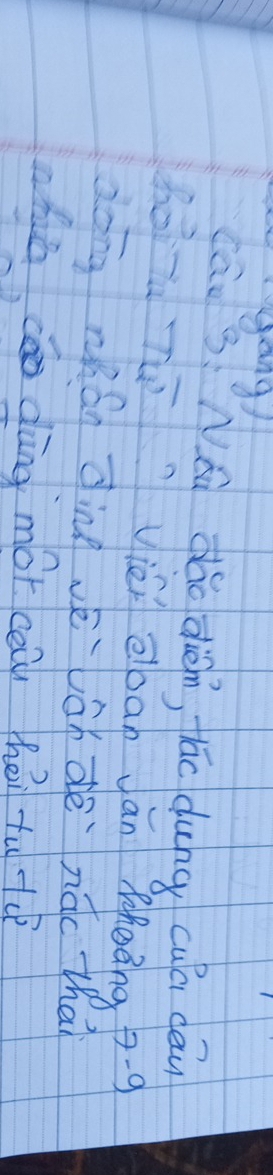 Câu 3: Nêu đặc điểm, tác dụng của câu
hỏi Tu Từ ? Viết đoạn văn khoảng 7-9
dòng nhận định về vấn đề rác thải
nhựa có dùng một câu hỏi tu từ